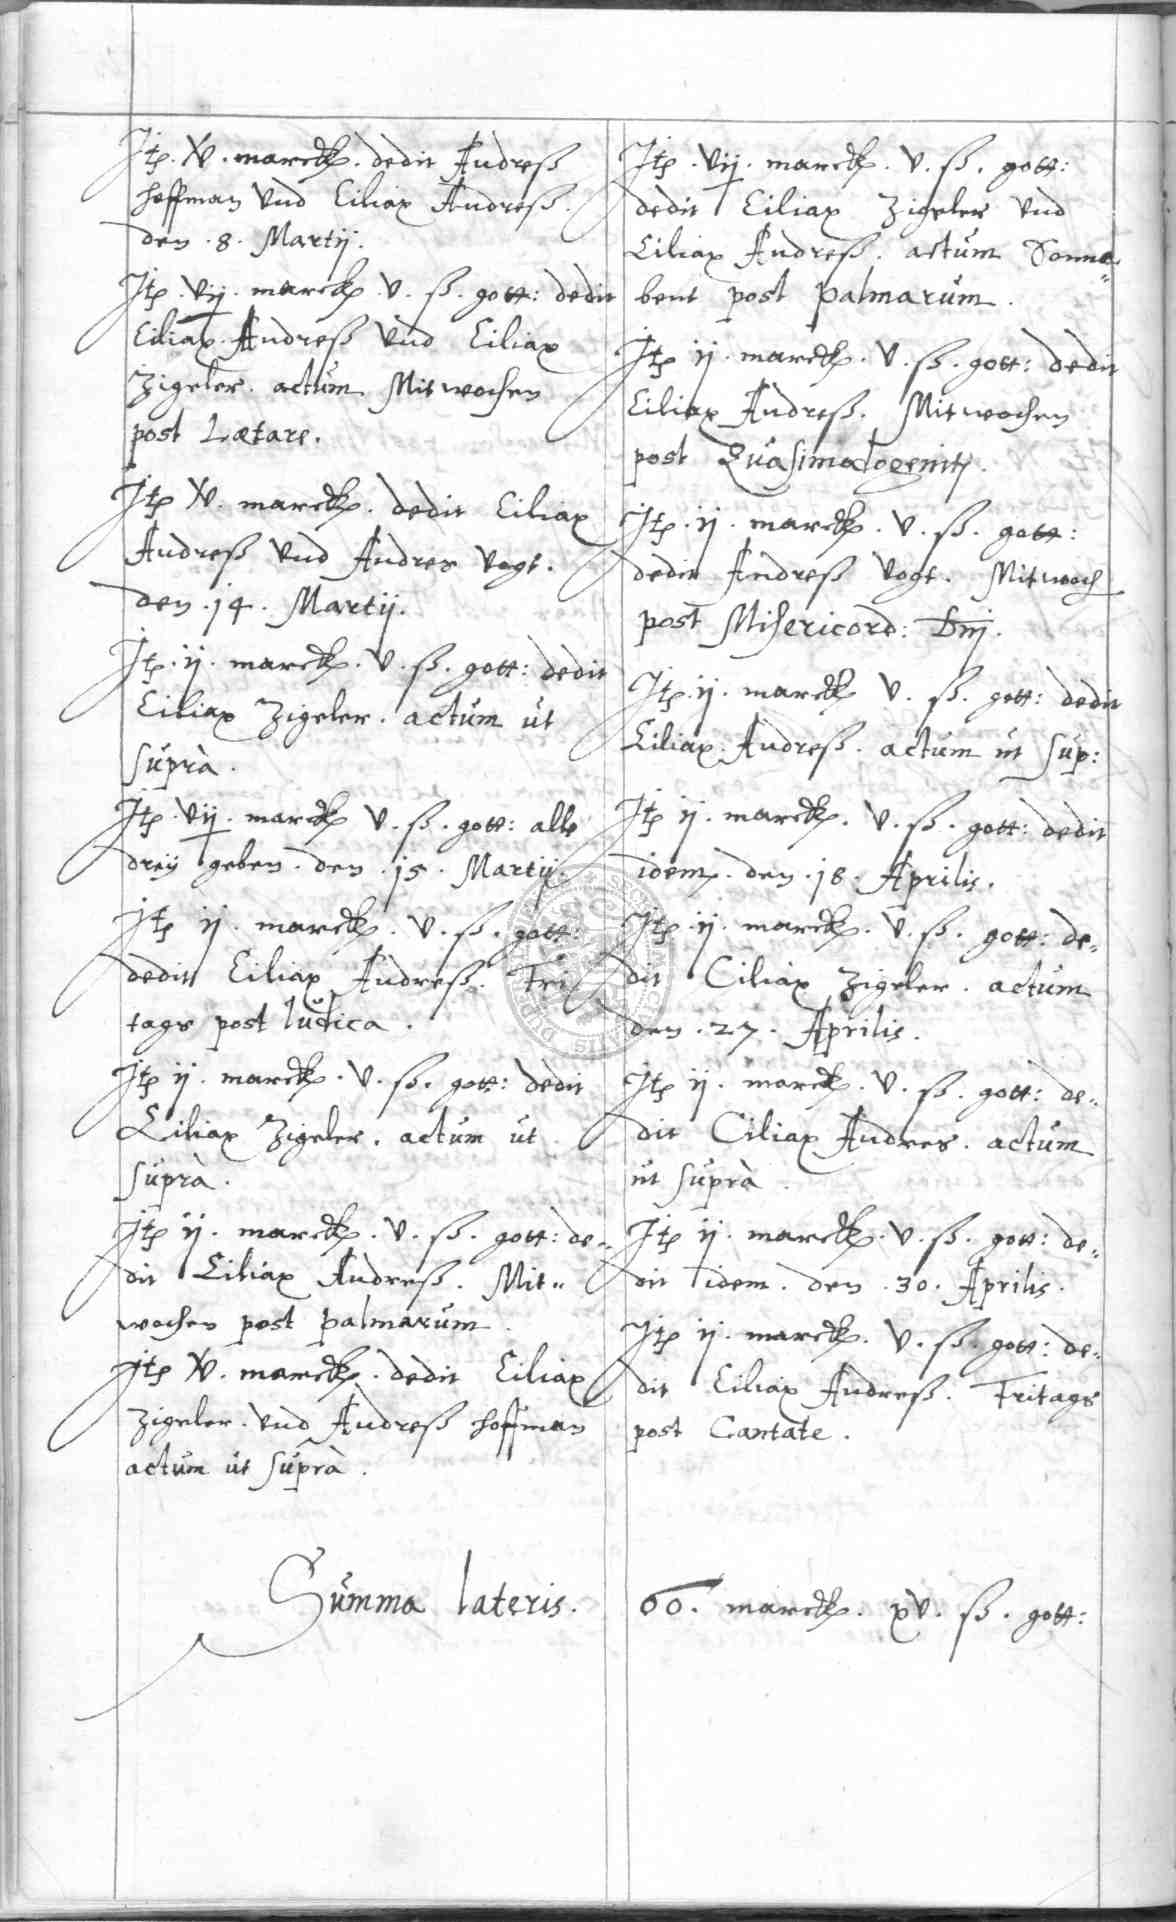 Itē. V. marck. dedit Andreß
hoffman vnd Ciliax Andreß.
den .8. Martij.
Itē. vij. marck. v. ß. gott: dedit
Ciliax Andreß vnd Ciliax
Zigeler. actum Mitwochen
post Lætare.
Itē V. marck. dedit Ciliax
Andreß vnd Andres Vogt.
den .14. Martij.
Itē. ij. marck. v. ß. gott: dedit
Ciliax Zigeler. actum ut
suprà.
Itē. vij. marck v. ß. gott: alle
dreij geben. den .15. Martij.
Itē ij. marck. v. ß. gott:
dedit Ciliax Andreß. Fri
tags post Iudica.
Itē ij. marck. v. ß. gott: dedit
Ciliax Zigeler. actum ut
suprà.
Itē ij. marck. v. ß. gott: de„
dit Ciliax Andreß. Mit„
wochen post palmarum.
Itē V. marck. dedit Ciliax
Zigeler. vnd Andreß hoffman
actum ut suprà.
Itē. vij. marck. v. ß. gott:
dedit Ciliax Zigeler vnd
Ciliax Andreß. actum Sonna„
bent post palmarum.
Itē ij. marck. v. ß. gott: dedit
Ciliax Andreß. Mitwochen
post Quasimodogenitj.
Itē. ij. marck. v. ß. gott:
dedit Andreß Vogt. Mitwoch
post Misericord: Dnj.
Itē. ij. marck v. ß. gott: dedit
Ciliax Andreß. actum ut sup:
Itē ij. marck. v. ß. gott: dedit
idem. den .18. Aprilis.
Itē. ij. marck. v. ß. gott: de„
dit Ciliax Zigeler. actum
den .27. Aprilis.
Itē ij. marck. v. ß. gott: de„
dit Ciliax Andres. actum
ut suprà.
Itē ij. marck. v. ß. gott: de„
dit idem. den .30. Aprilis.
Itē ij. marck. v. ß. gott: de„
dit Ciliax Andreß. Fritags
post Cantate.
Summa lateris. 60. marck. xv. ß. gott: